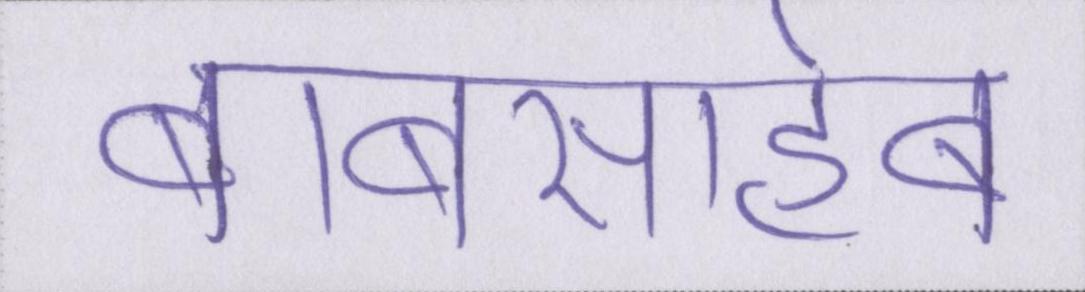 बाबसाहेब